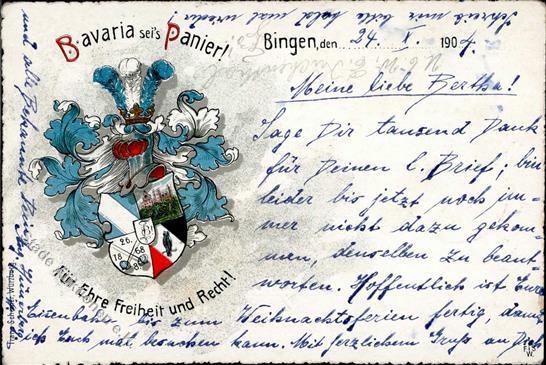 Bavaria sei's Panier!
Bingen, den 24. X. 1904.
Meine liebe Bertha!
Sage Dir tausend Dank
für Deinen l. Brief; bin
leider bis jetzt noch im-
mer nicht dazu gekom-
men, denselben zu beant-
worten. Hoffentlich ist Eure
Eisenbahn bis zum Weihnachtsferien fertig, damit
ich Euch mal besuchen kann. Mit herzlichem Gruss an Dich
und alle Bekannte
Schreib mir bitte bald mal wieder!
26.
18 68
Für Ehre Freiheit und Recht!